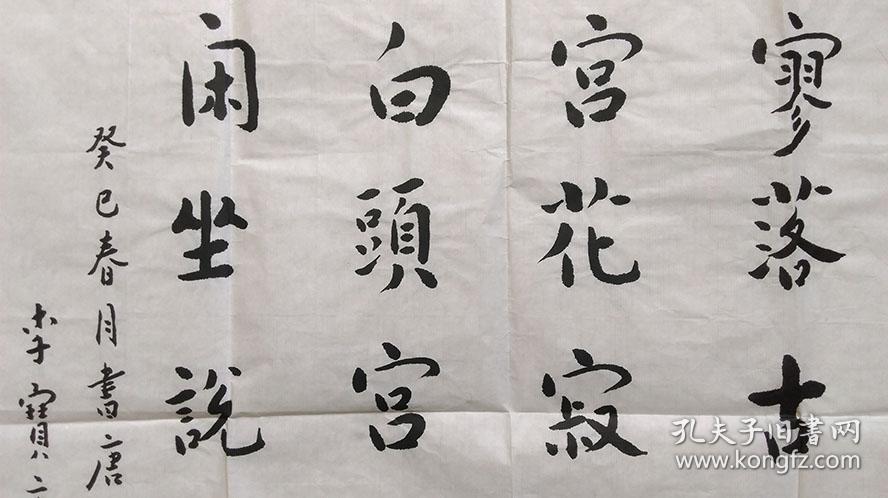 寥落古
宫花寂
白頭宫
闲坐説
癸巳春月書唐
李寶
孔夫子旧書网
www.kongfz.com